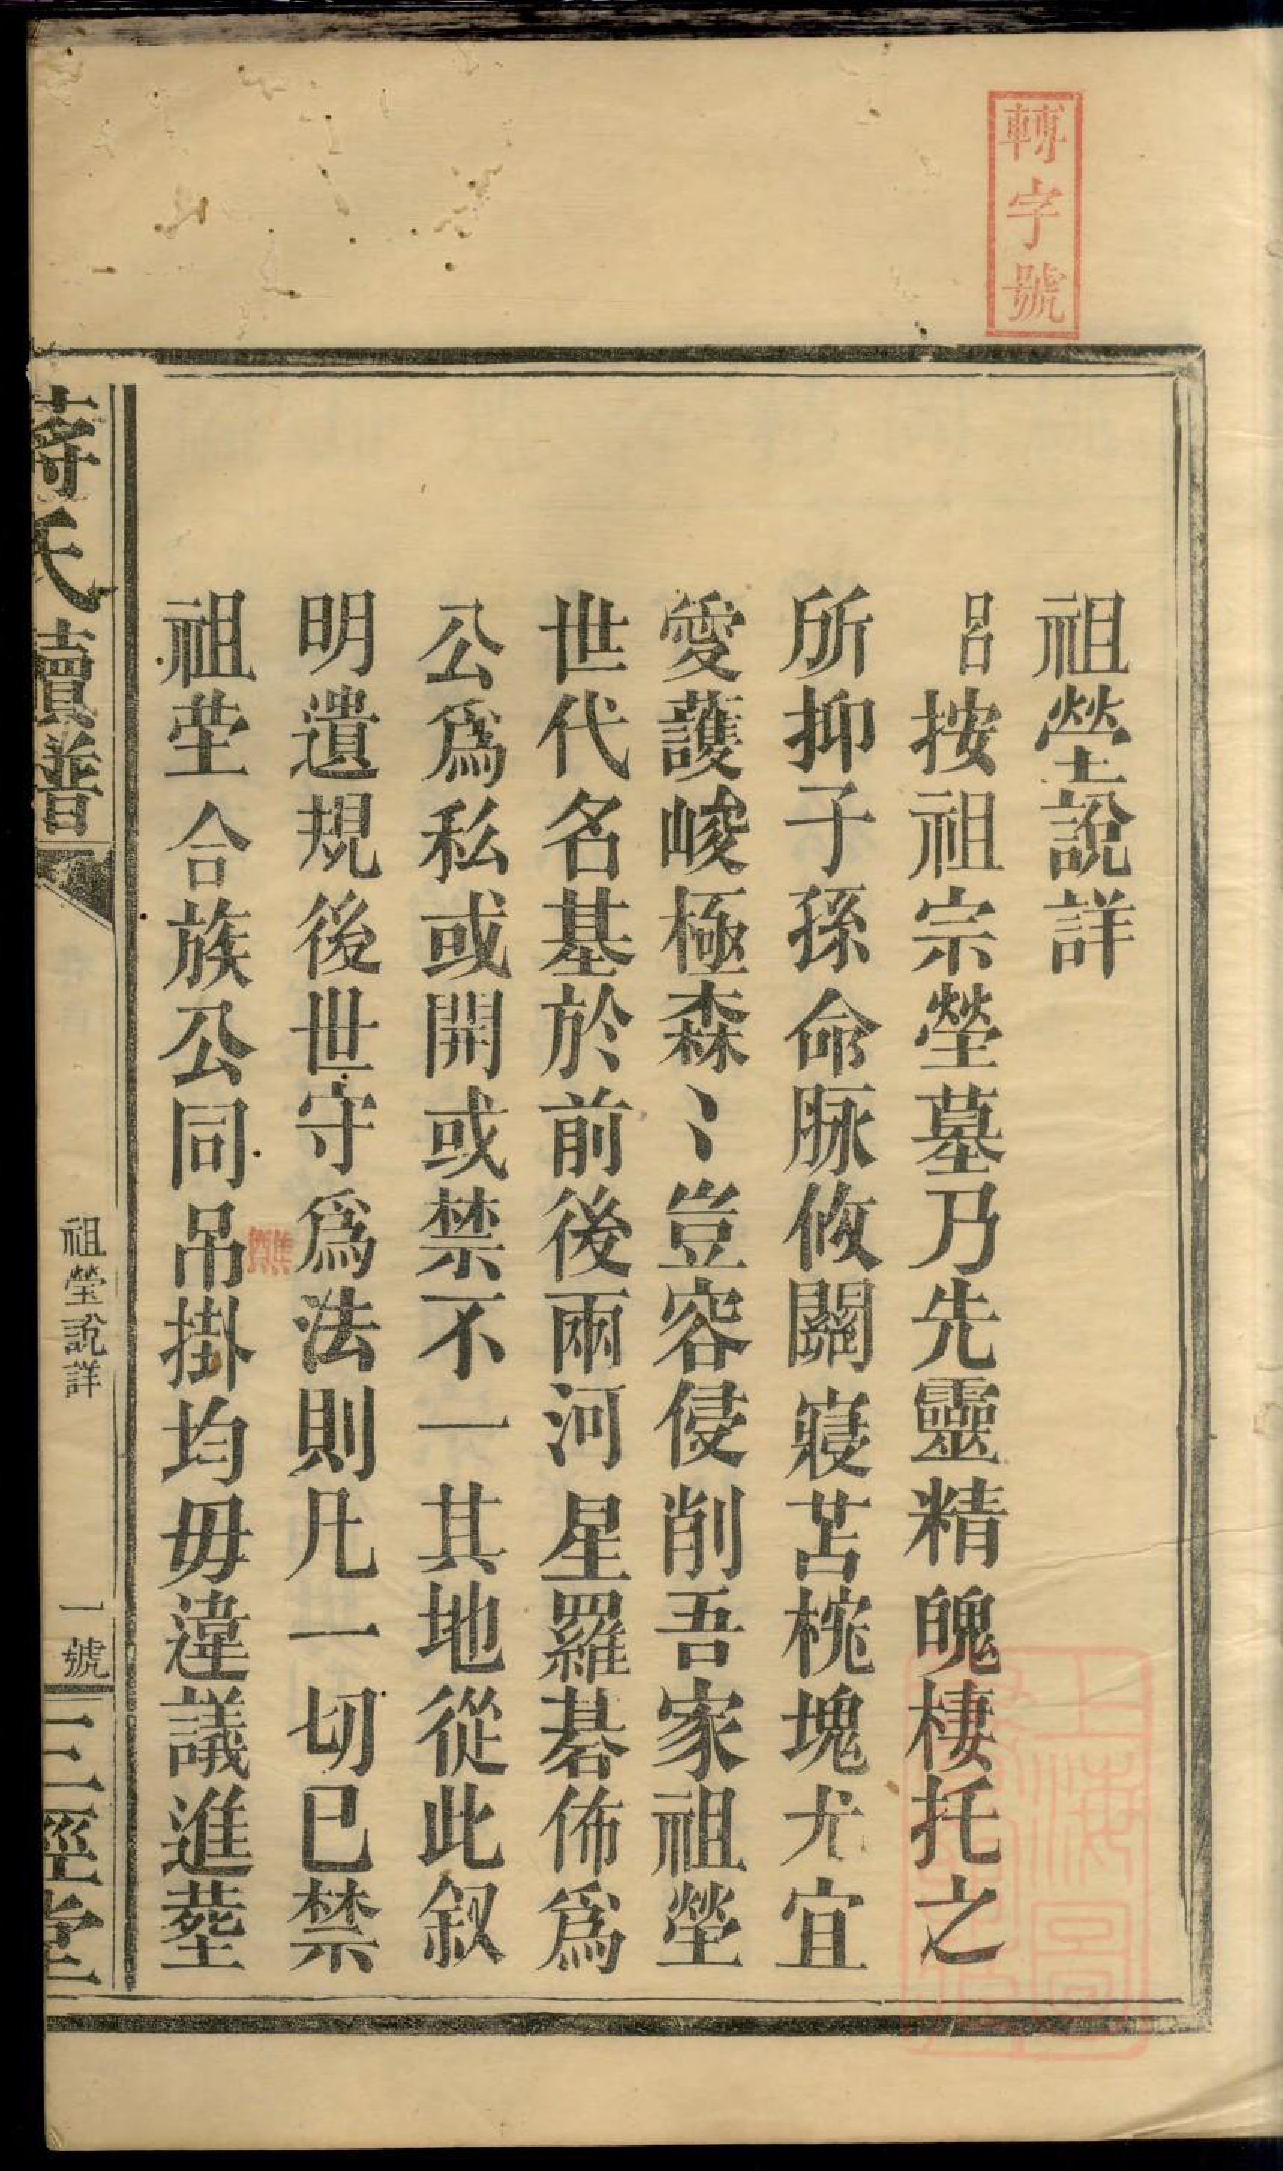 轉字號
祖塋說詳
呂按祖宗塋墓乃先靈精魄棲托之
所抑子孫命脉攸關寢苫枕塊尤宜
愛護峻極森〻豈容侵削吾家祖塋
世代名基於前後兩河星羅碁佈爲
公爲私或開或禁不一其地從此叙
明遺規後世守爲法則凡一切已禁
祖塋合族公同吊掛均毋違議進塟
蔣氏續譜
祖塋說詳
一號
三徑堂
上海圖